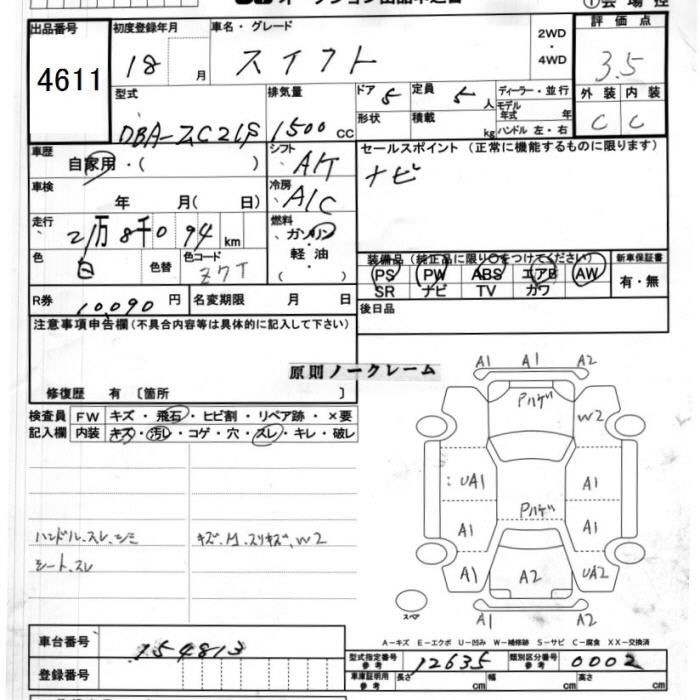 ①会場控
出品番号 初度登録年月 車名・グレード 2WD 評価点
4611 18 月 スイフト ・4WD 3.5
型式 排気量 ドア 5 定員 5 人 ディーラー・並行 外装 内装
DBA-ZC21S 1500 cc 形状 積載 kg モデル年式 年 C C
ハンドル 左・右
車歴 シフト セールスポイント (正常に機能するものに限ります)
自家用・( ) A/T ナビ
車検 冷房
年 月( 日) A/C
走行 燃料
2万8千094 km ガソリン
色 色替 色コード 軽油 装備品(純正品に限り○をつけてください) 新車保証書
白 ZィT PS PW ABS エアB AW 有・無
SR ナビ TV カワ
R券 10,090 円 名変期限 月 日 後日品
注意事項申告欄(不具合内容等は具体的に記入して下さい)
原則ノークレーム
修復歴 有 〔箇所 〕
検査員 FW キズ・飛石・ヒビ割・リペア跡・×要
記入欄 内装 キズ・汚レ・コゲ・穴・スレ・キレ・破レ
A1 A1 A2
Pハゲ W2
UA1 A1
Pハゲ
A1 A1
A1 A2 UA2
A1 A2
スペア
ハンドル、スレ、シミ キズ、M、スリキズ、W2
シート、スレ
A-キズ E-エクボ U-凹み W-補修跡 S-サビ C-腐食 XX-交換済
車台番号 154813 型式指定番号 参考 12635 類別区分番号 参考 0002
登録番号 車庫証明用 参考 長さ cm 幅 cm 高さ cm